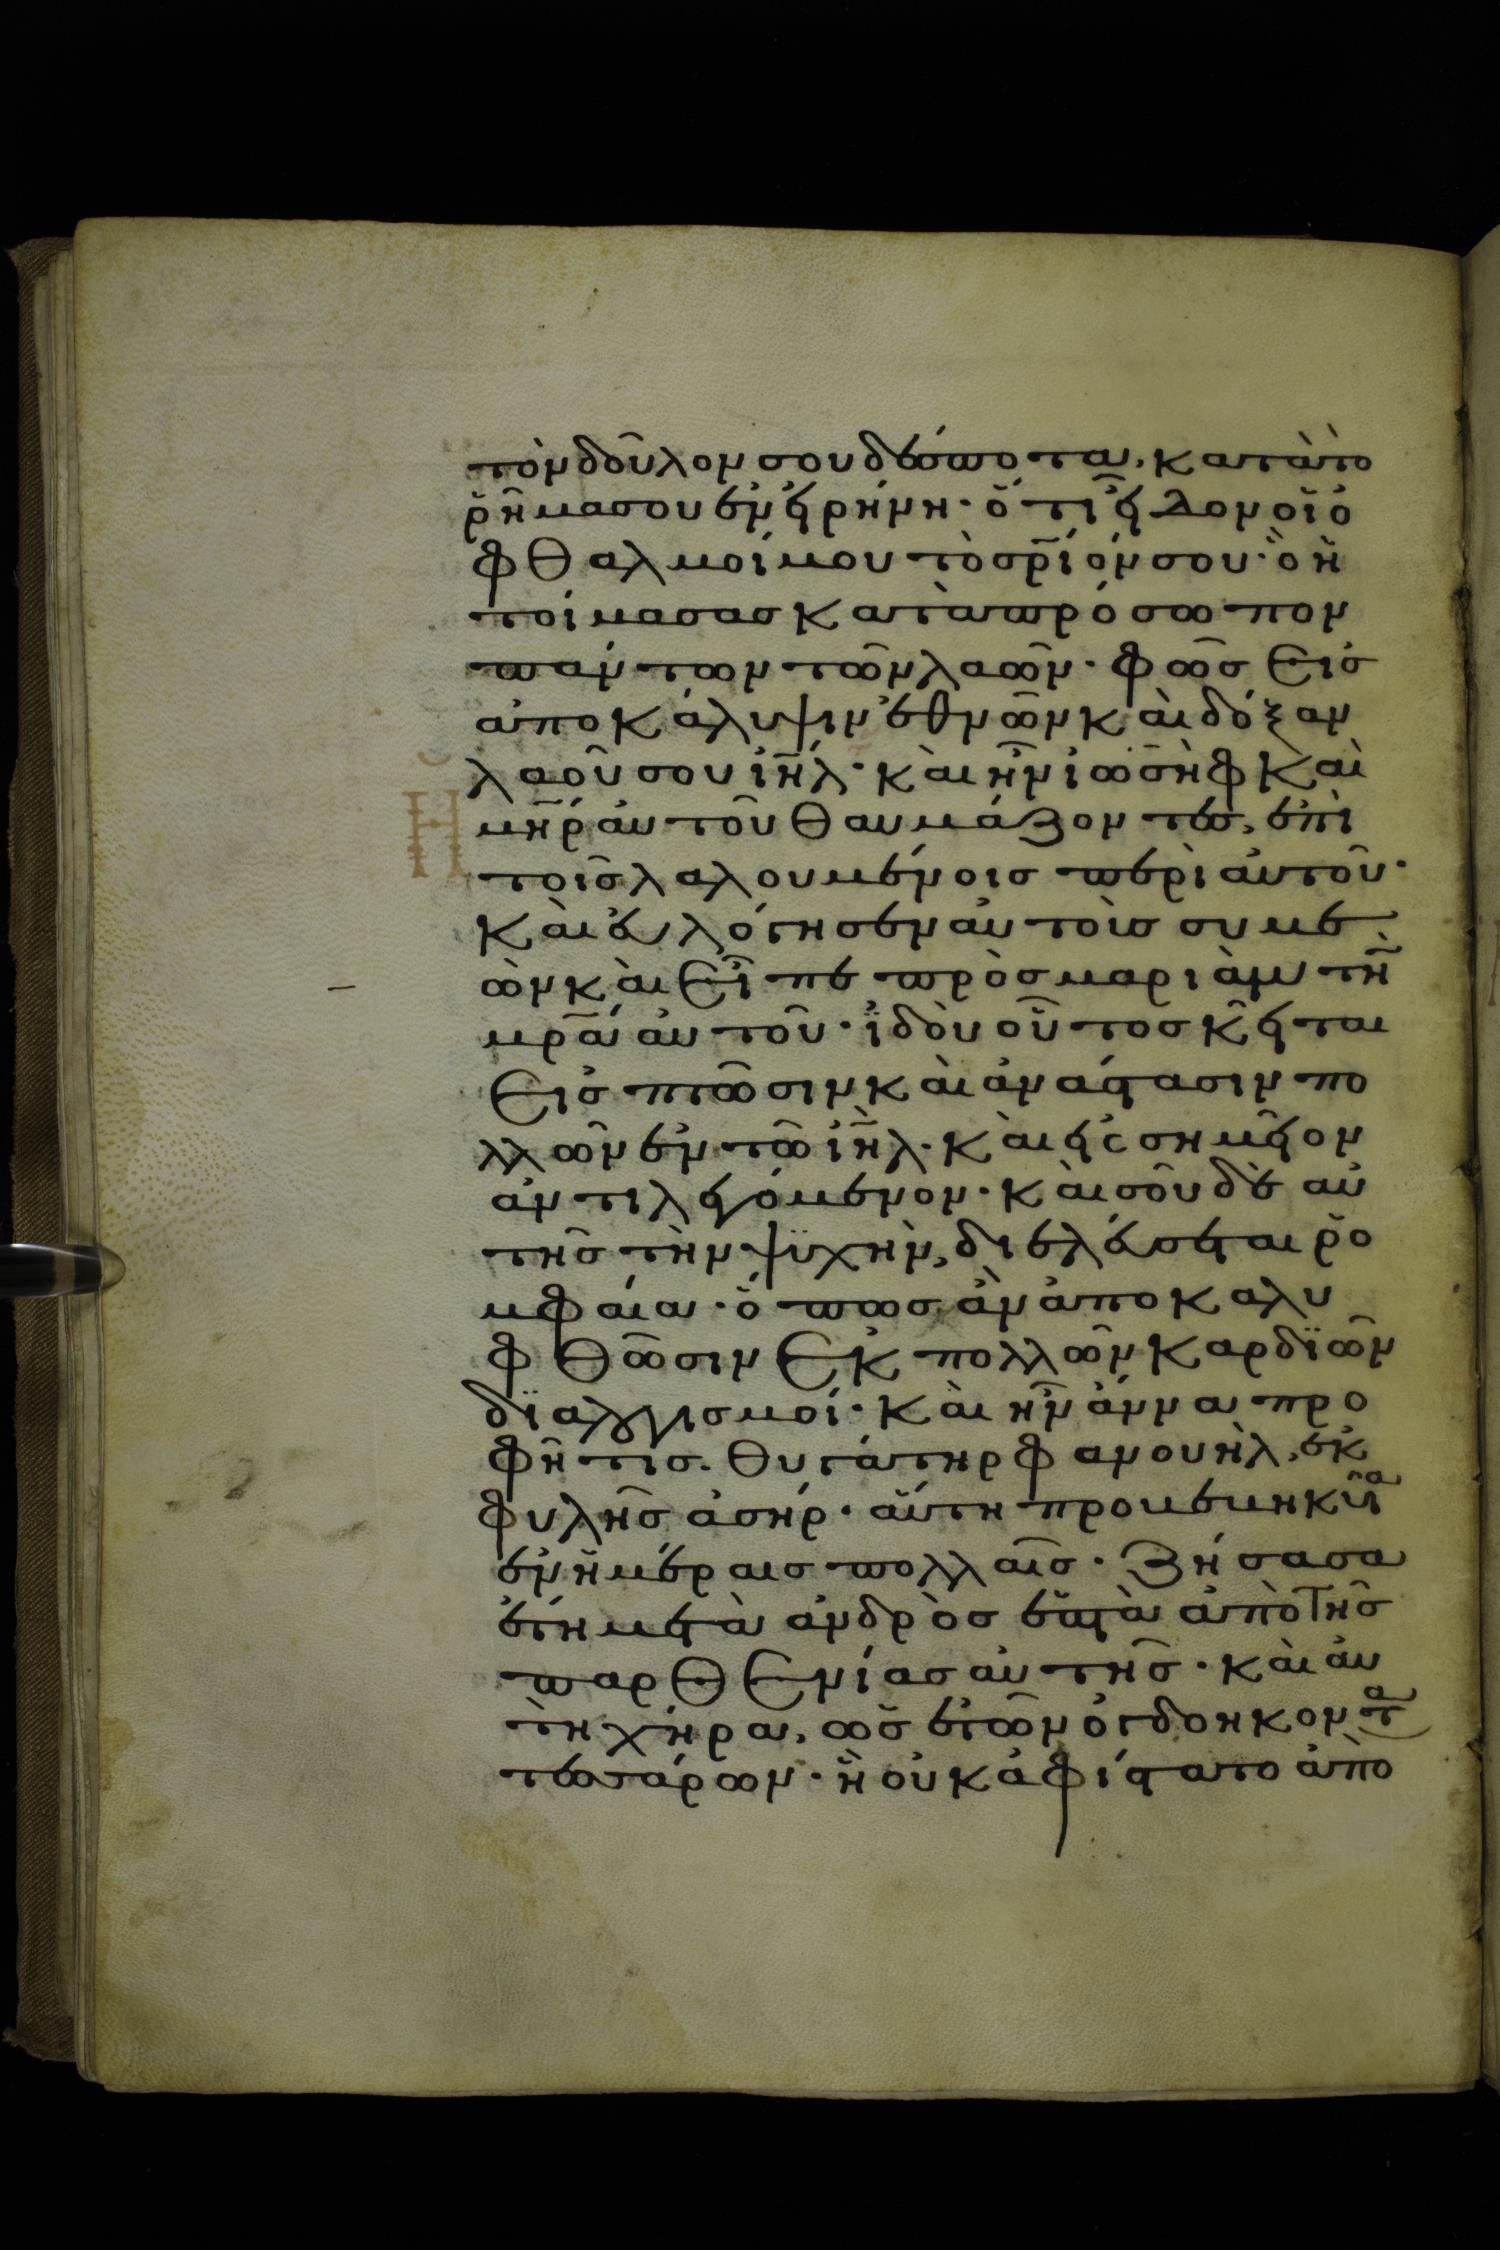 τὸν δοῦλον σου δέσποτα, κατὰ τὸ
ῥῆμα σου ἐν εἰρήνη· ὅτι εἶδον οἱ ὀ
φθαλμοί μου τὸ σ̅ρ̅ιόν σου· ὃ ἡ
τοίμασας κατὰ πρόσωπον
πάντων τῶν λαῶν· φῶς εἰς
ἀποκάλυψιν ἐθνῶν καὶ δόξαν
λαοῦ σου ἰ̅η̅λ̅· καὶ ἦν ἰωσὴφ καὶ
μ̅η̅ρ̅ αὐτοῦ θαυμάζοντες, ἐπὶ
τοῖς λαλουμένοις περὶ αὐτοῦ·
καὶ εὐλόγησεν αὐτοὶς συμε
ὼν καὶ εἶπε πρὸς μαριὰμ τὴν
μ̅ρ̅α̅ αὐτοῦ· ἰδοὺ οὗτος κεῖται
εἰς πτῶσιν καὶ ἀνάστασιν πο
λλῶν ἐν τῶ ἰ̅η̅λ̅· καὶ εἰς σημεῖον
ἀντιλεγόμενον· καὶ σοῦ δὲ αὐ
τῆς τὴν ψϋχὴν, διελεύσεται ῥο
μφαία· ὅπως ἂν ἀποκαλυ
φθῶσιν ἐκ πολλῶν καρδϊῶν
δϊαλογισμοί· καὶ ἦν ἄννα προ
φῆτις· θυγάτηρ φανουὴλ, ἐκ
φυλῆς ἀσήρ· αὕτη προμεμηκυῖα
ἐν ἡμέραις πολλαῖς· ζήσασα
ἔτη μετὰ ἀνδρὸς ἑπτὰ ἀπὸ τῆς
παρθενίας αὐτῆς· καὶ αὐ
τὴ χήρα, ὡς ἐτῶν ὀγδοηκοντα
τεσσάρων· ἣ οὐκ ἀφίστατο ἀπὸ
Η